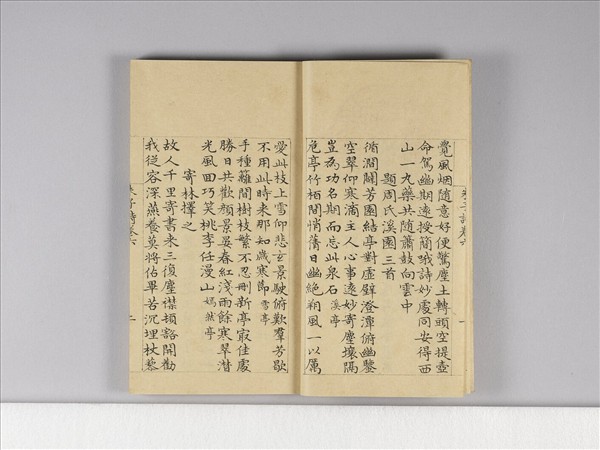 覺風烟隨意好便驚塵土轉頭空提壺
命駕幽期遠授簡哦詩妙處同安得西
山一丸藥共隨簫鼓向雲中
題周氏溪園三首
循澗闢芳園結亭對虛壁澄潭俯幽鑒
空翠仰寒滴主人心事遠妙寄塵壤隔
豈為功名期而忘此泉石 溪亭
危亭竹栢間悄蒨日幽絕朔風一以厲
愛此枝上雪仰悲玄景駛俯歎羣芳歇
不用此時来那知歲寒節 雪亭
手種籬間樹枝繁不忍刪新亭㝡佳處
勝日共歡顏景晏春紅淺雨餘寒翠潸
光風回巧笑桃李任漫山 嫣然亭
寄林擇之
故人千里寄書来三復塵襟頓豁開勸
我從容深燕養莫將佔畢苦沉埋杖藜